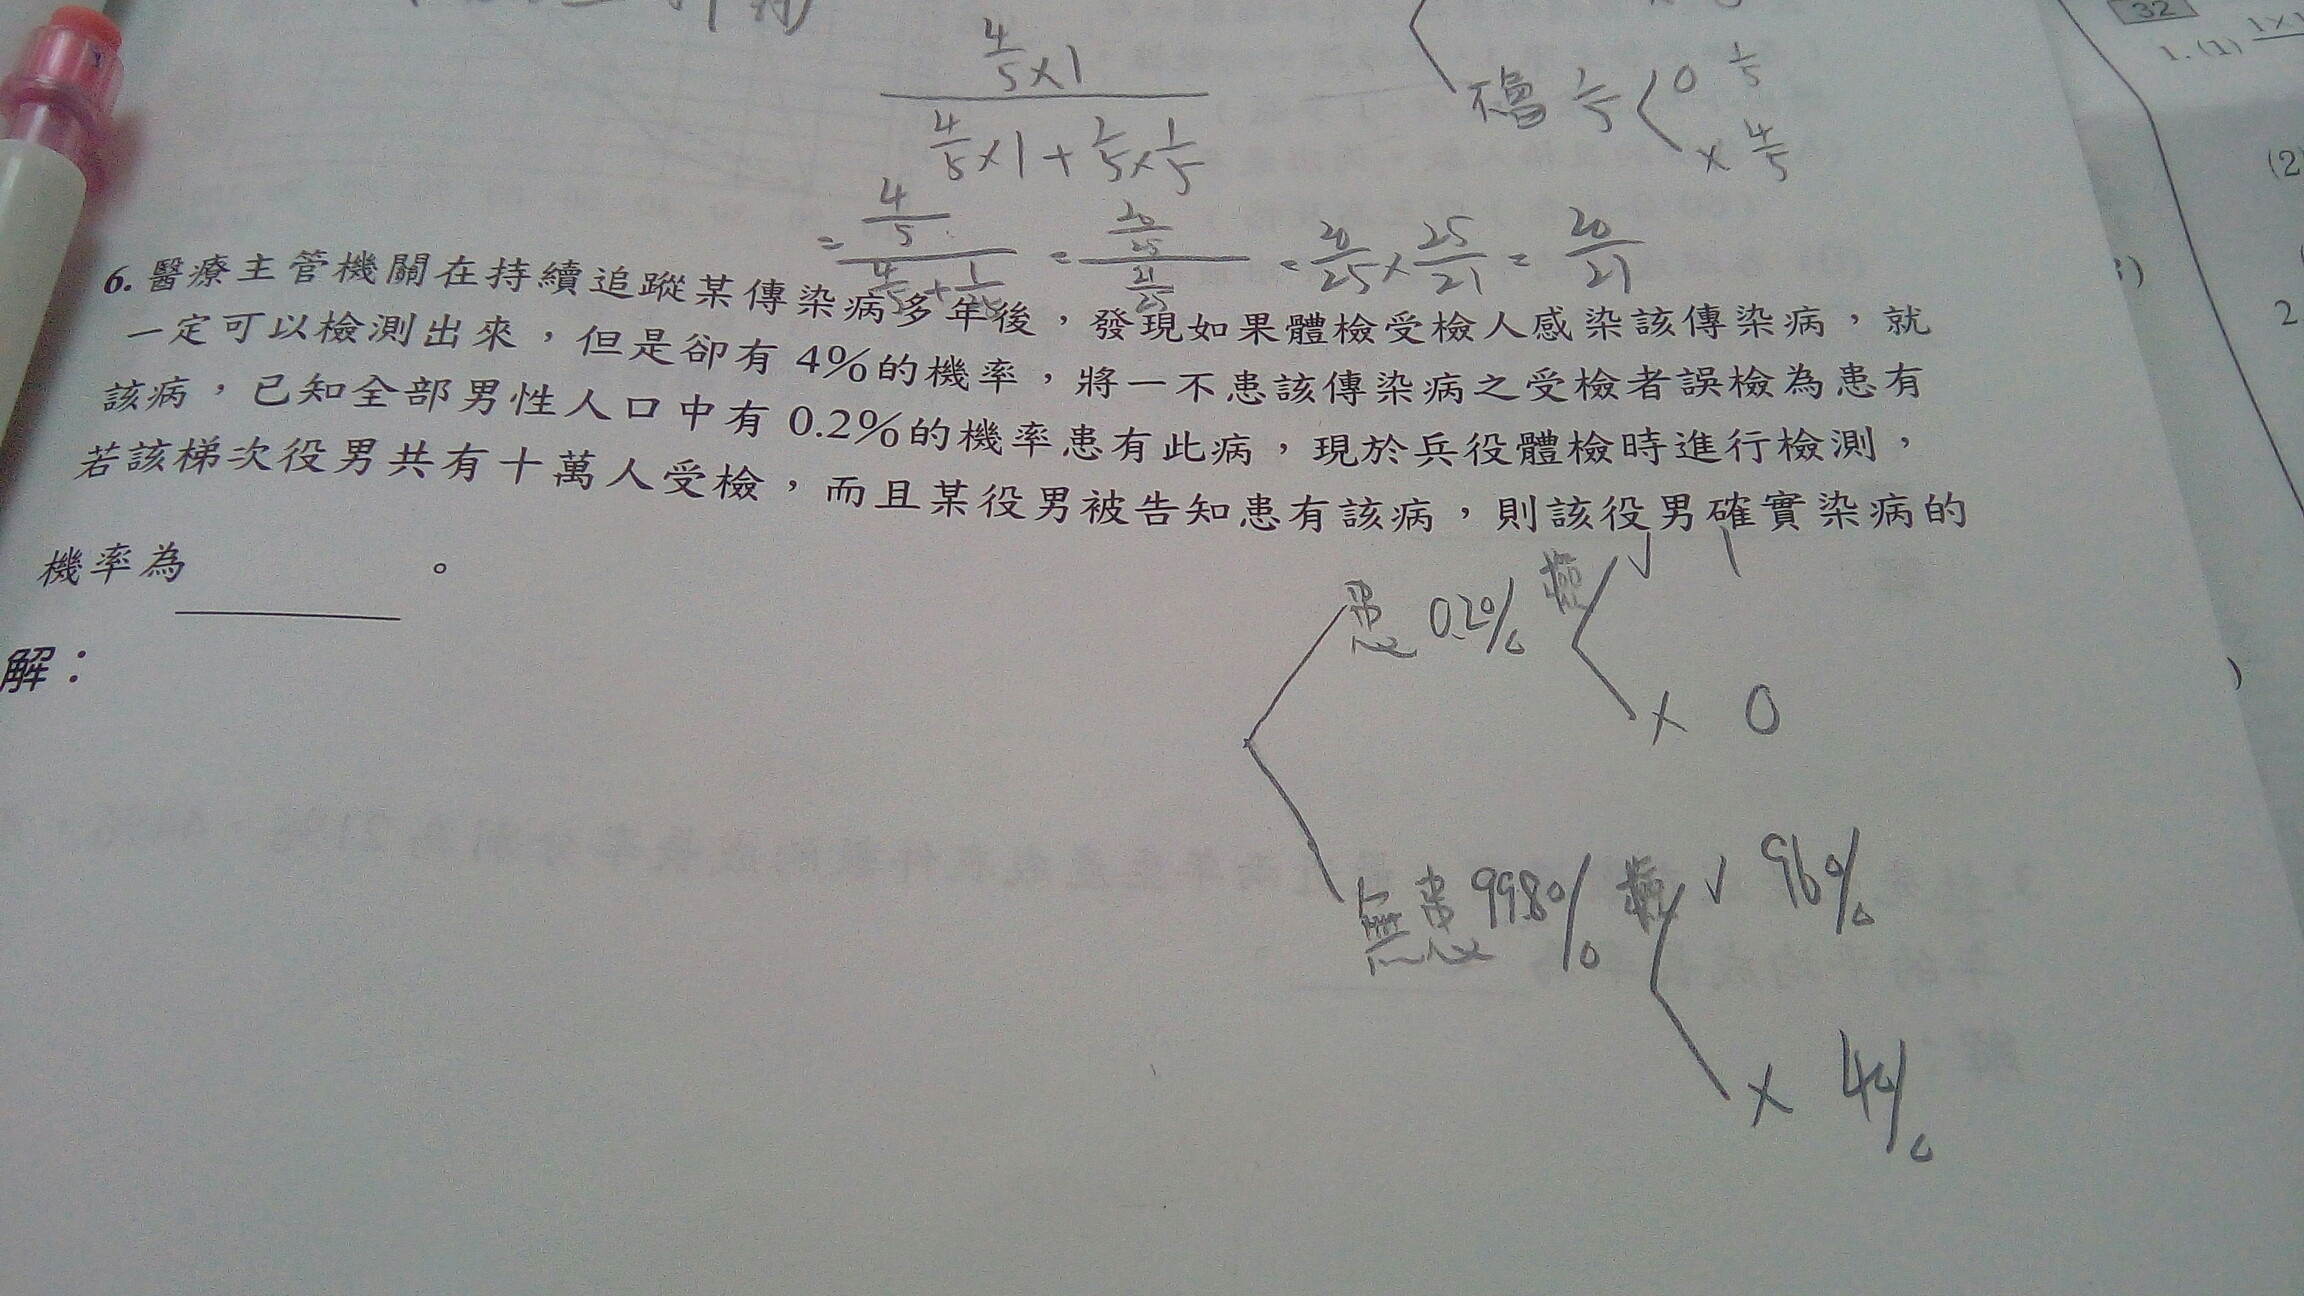 4/5×1
4/5×1+1/5×1/5
不會 1/5 O 1/5
× 4/5
= 4/5 = 20/25 = 20/25 × 25/21 = 20/21
4/5+1/25 21/25
32
1. (1) 1×1
(2)
2.
6. 醫療主管機關在持續追蹤某傳染病多年後，發現如果體檢受檢人感染該傳染病，就
一定可以檢測出來，但是卻有 4%的機率，將一不患該傳染病之受檢者誤檢為患有
該病，已知全部男性人口中有 0.2%的機率患有此病，現於兵役體檢時進行檢測，
若該梯次役男共有十萬人受檢，而且某役男被告知患有該病，則該役男確實染病的
機率為 。
解：
患 0.2% 檢 ✓ 1
× 0
無患 99.8% 檢 ✓ 96%
× 4%